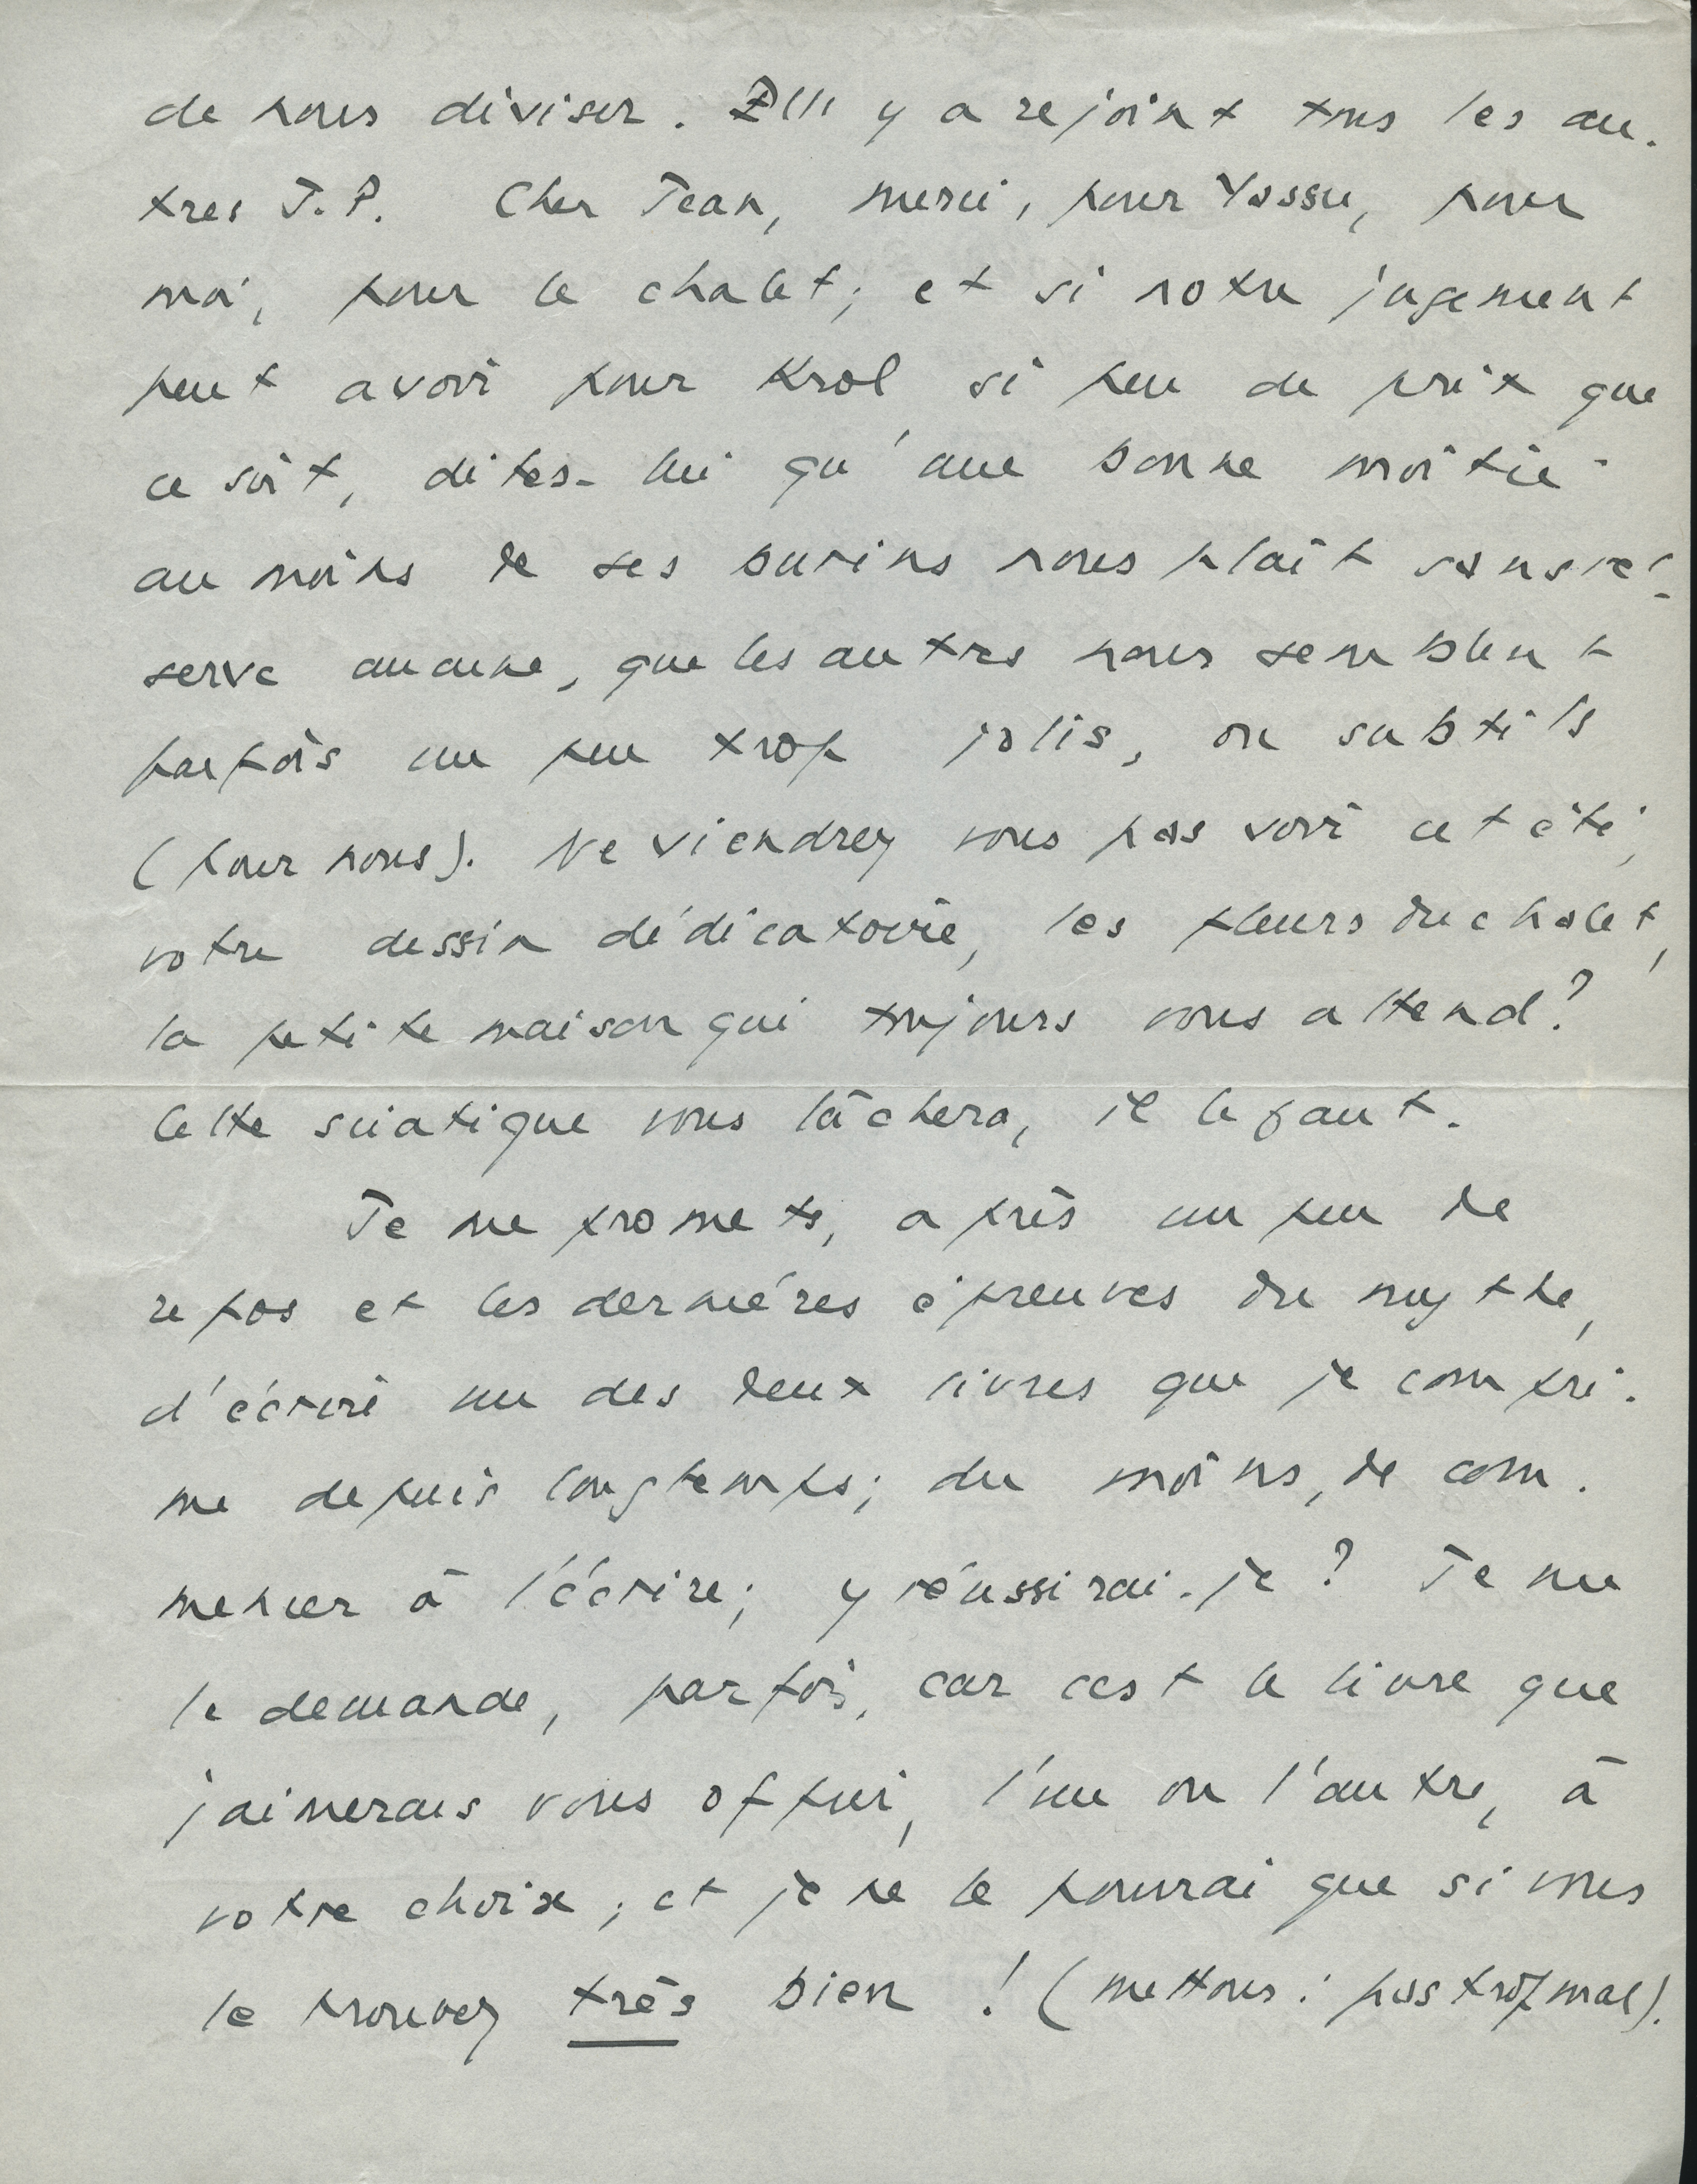 de nous diviser. Il y a rejoint tous les au.
tres J.P. Cher Jean, merci, pour Yassu, pour
moi, pour le chalet; et si notre jugement
peut avoir pour Krol si peu de prix que
ce soit, dites-lui qu'une bonne moitié
au moins de ses burins nous plaît sans ré-
serve aucune, que les autres nous semblent
parfois un peu trop jolis, ou subtils
(pour nous). Ne viendrez vous pas voir cet été,
votre dessin dédicatoire, les fleurs du chalet,
la petite maison qui toujours vous attend?
Cette sciatique vous lâchera, il le faut.
Je me promets, après un peu de
repos et les dernières épreuves du mythe,
d'écrire un des deux livres que je compri.
me depuis longtemps; du moins, de com.
mencer à l'écrire; y réussirai-je? Je me
le demande, parfois, car c'est le livre que
j'aimerais vous offrir, l'un ou l'autre, à
votre choix; et je ne le pourrai que si vous
le trouvez très bien! (mettons: pas trop mal).